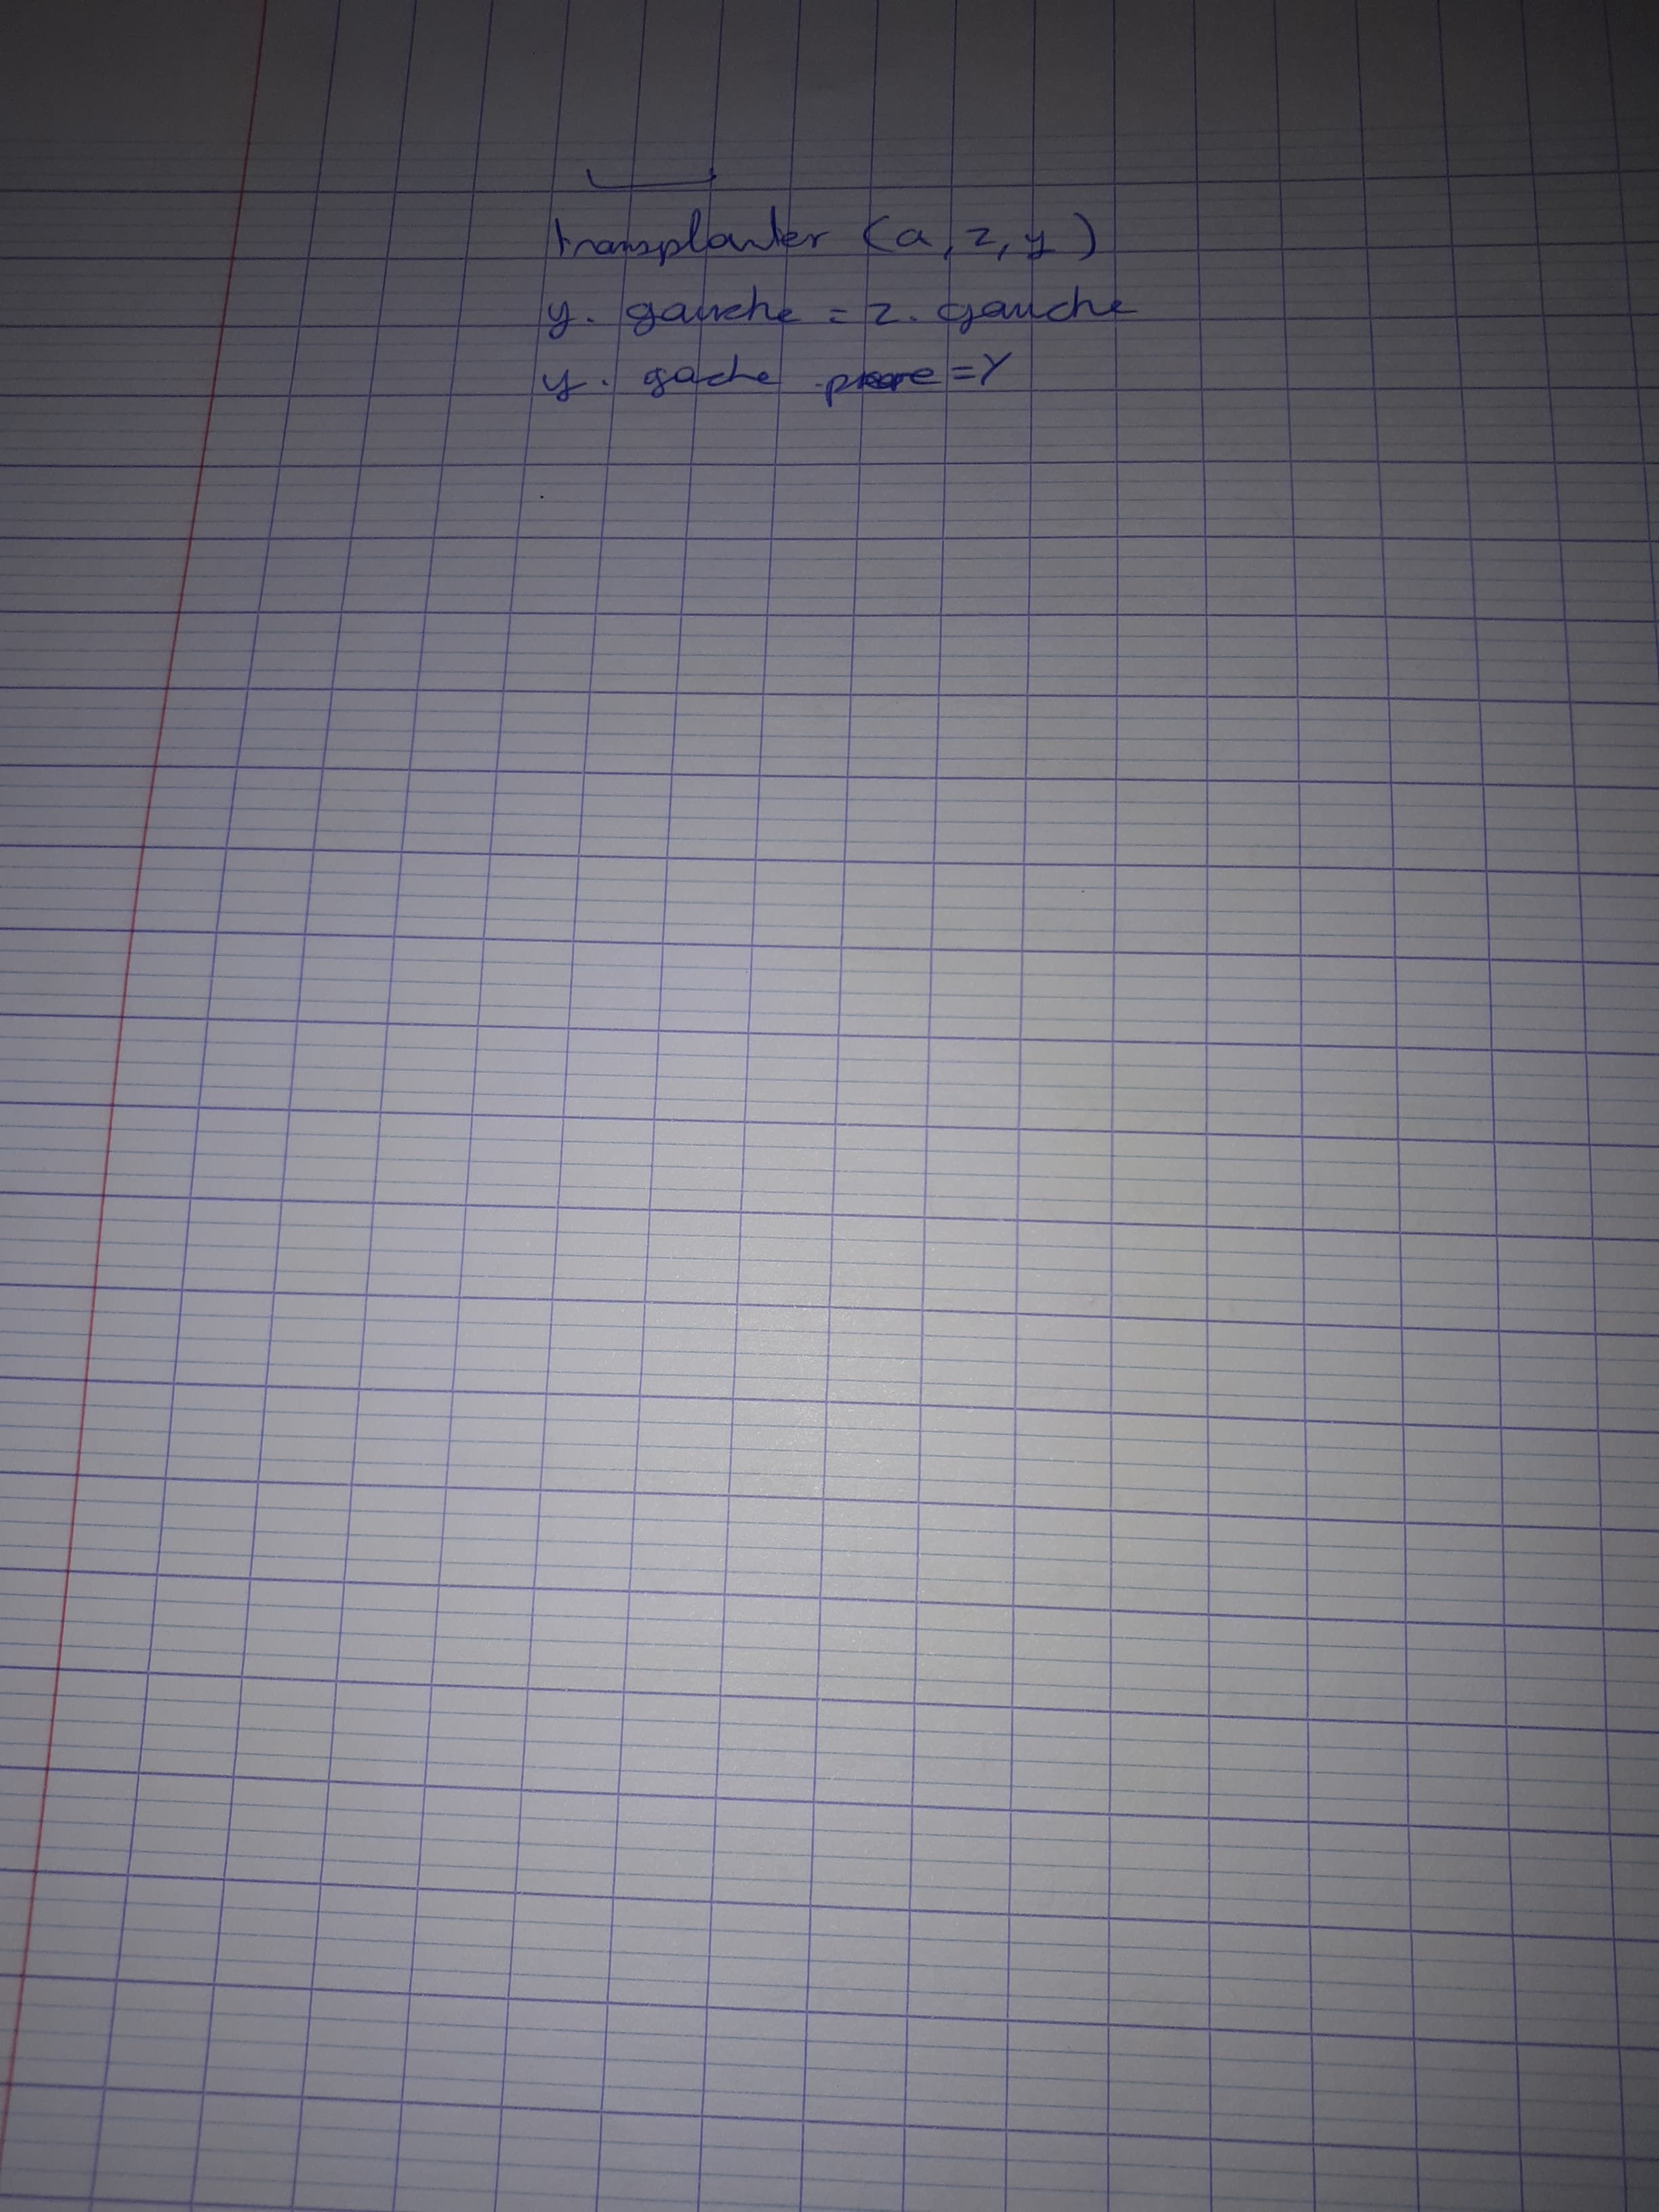 transplanter (a, z, y)
y. gauche = z. gauche
y. gache .pere = Y